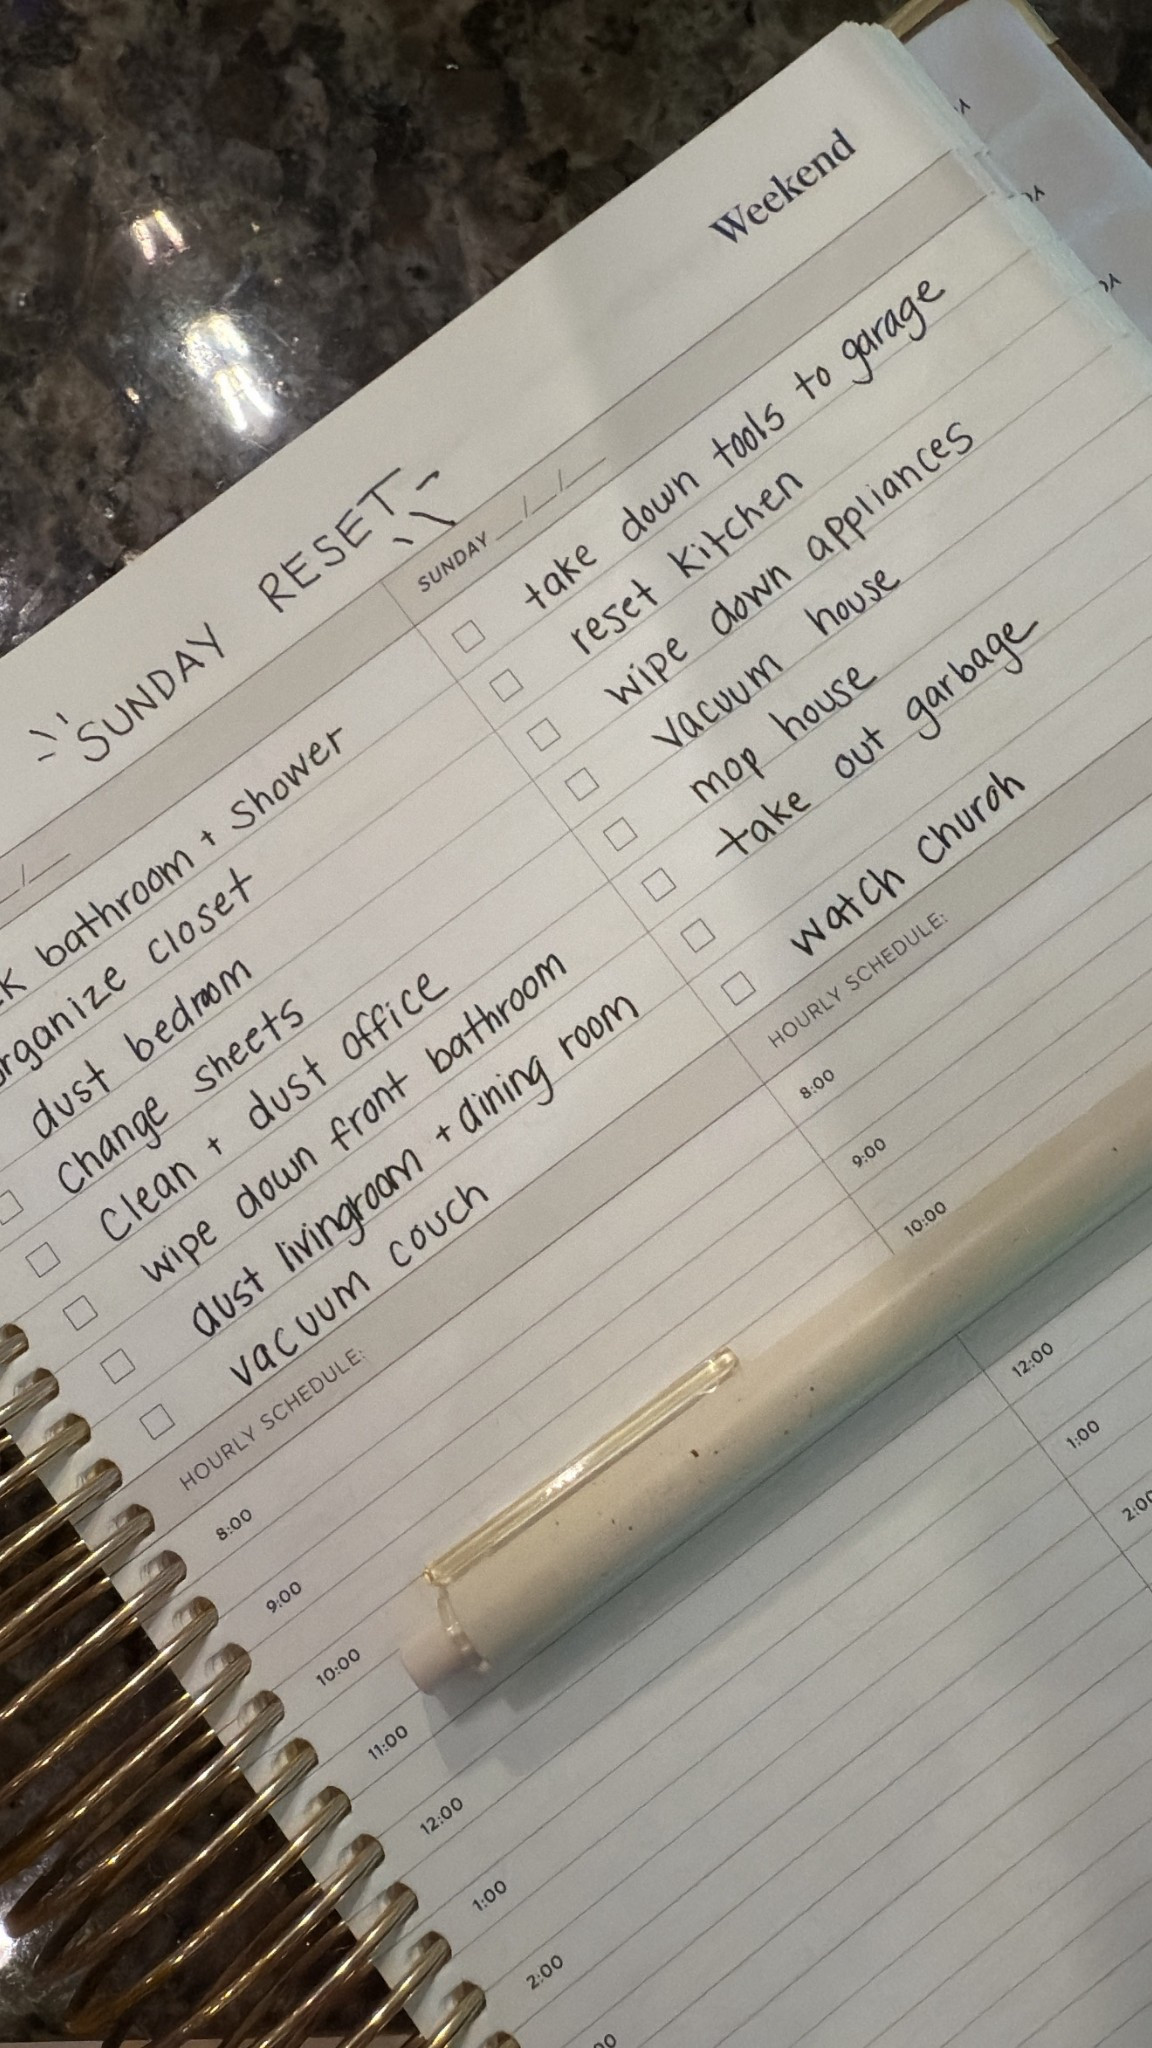 Weekend
SUNDAY RESET
bathroom + shower
organize closet
dust bedroom
change sheets
clean + dust office
wipe down front bathroom
dust livingroom + dining room
vacuum couch
HOURLY SCHEDULE:
8:00
9:00
10:00
11:00
12:00
1:00
2:00
SUNDAY __/__/__
take down tools to garage
reset kitchen
wipe down appliances
vacuum house
mop house
take out garbage
watch church
HOURLY SCHEDULE:
8:00
9:00
10:00
12:00
1:00
2:00